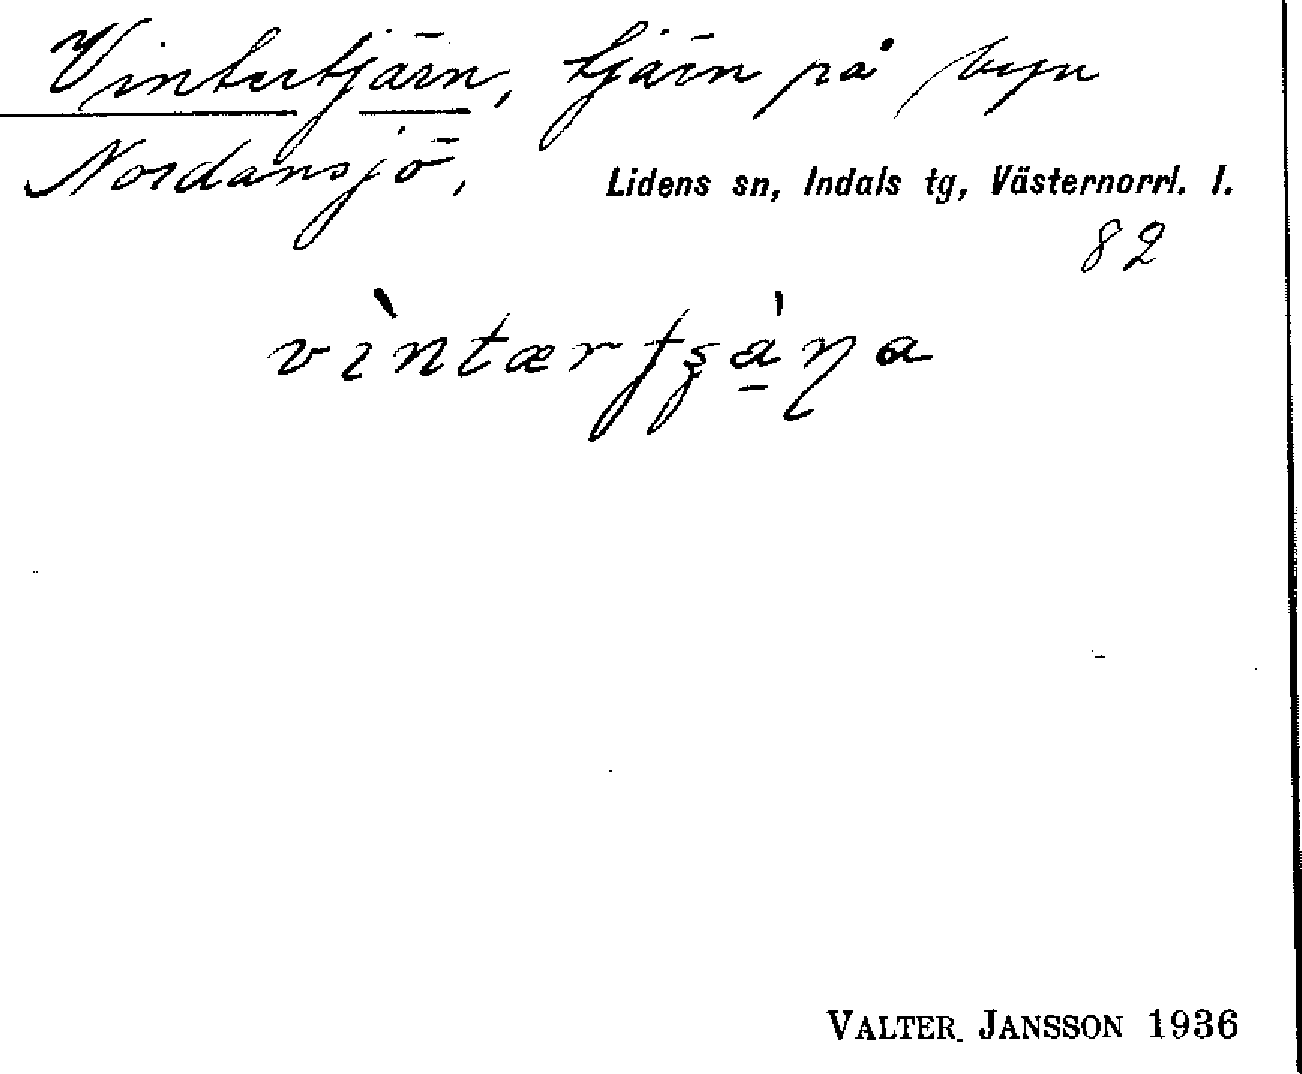 Vintertjärn, tjärn på byn
Nordansjö,
Lidens sn, Indals tg, Västernorrl. l.
82
vìntærtʂa̱̍ɳa
VALTER JANSSON 1936